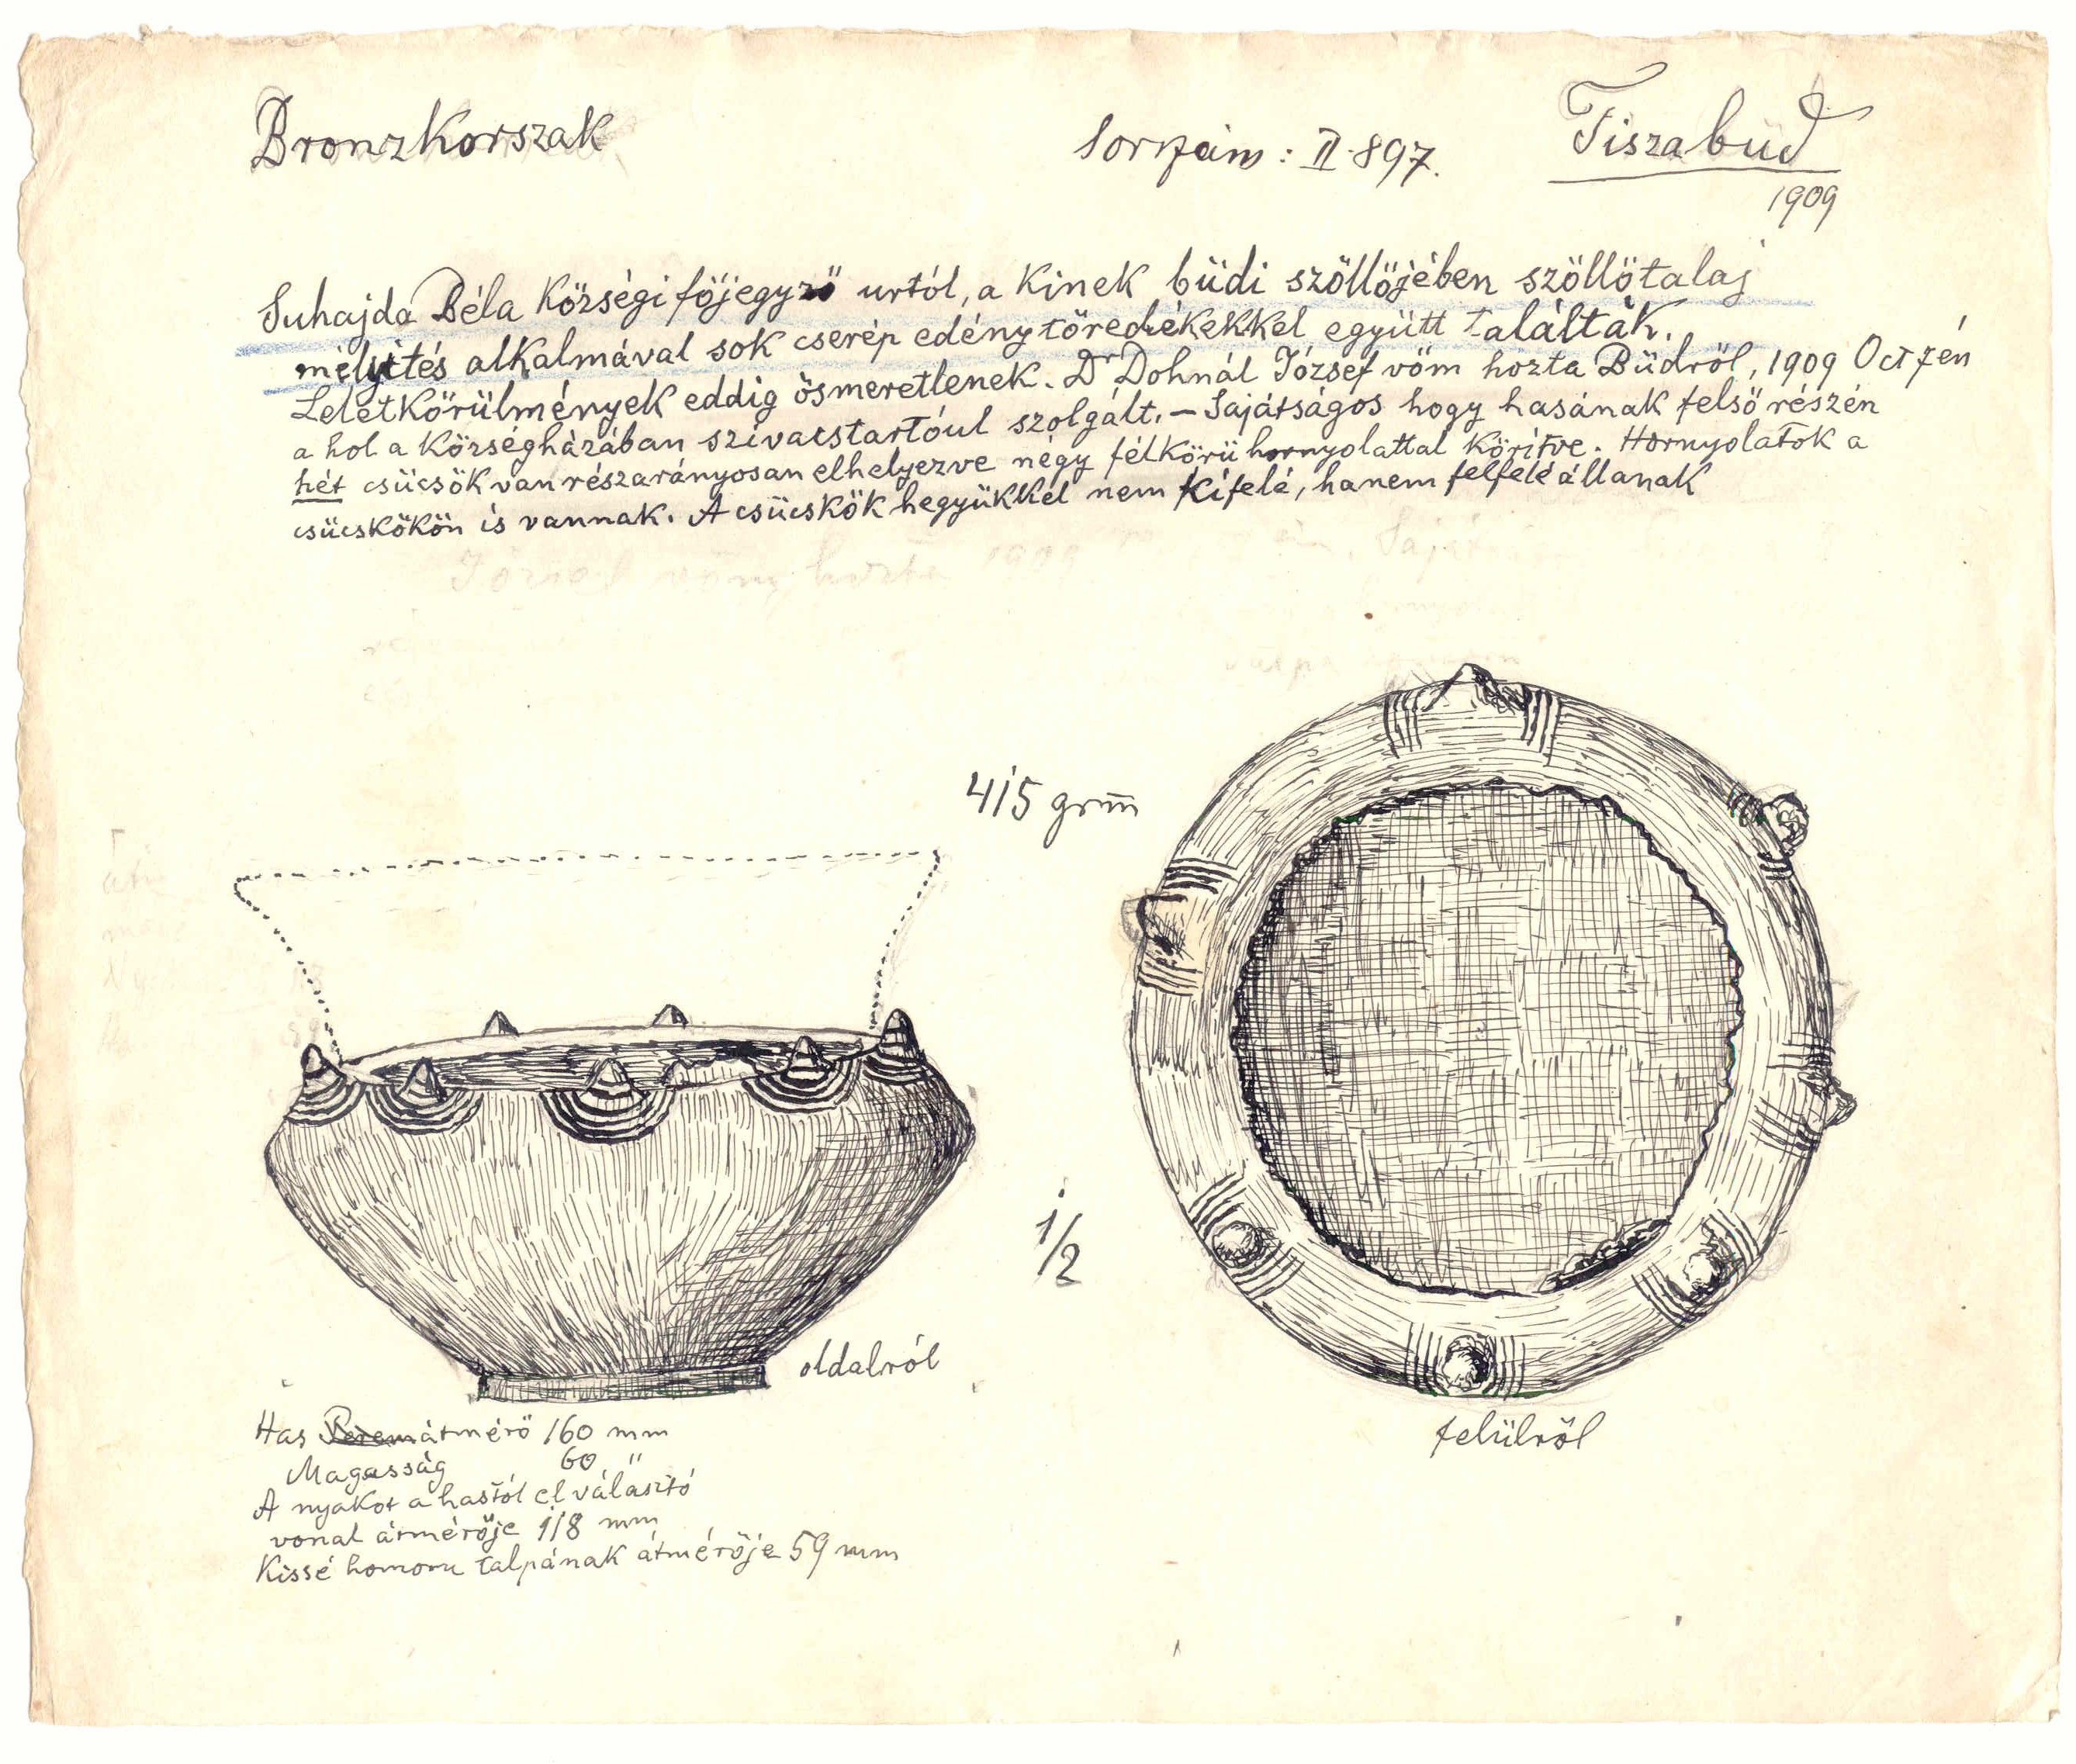 Bronzkorszak
Sorszám: II.897.
Tiszabüd
1909
Suhajda Béla községi főjegyző urtól, a kinek büdi szöllőjében szöllőtalaj
mélyités alkalmával sok cserép edénytöredékekkel együtt találták.
Leletkörülmények eddig ösmeretlenek. Dr Dohnál József vöm hozta Büdről, 1909 Oct 7én
a hol a községházában szivacstartóul szolgált. – Sajátságos hogy hasának felső részén
hét csücsök van részarányosan elhelyezve négy félkörü hornyolattal körítve. Hornyolatok a
csücskökön is vannak. A csücskök hegyükkel nem kifelé, hanem felfelé állanak
415 grm
1/2
oldalról
felülről
Has Peremátmérő 160 mm
Magasság 60 "
A nyakot a hastól elválasztó
vonal átmérője 118 mm
Kissé homoru talpának átmérője 59 mm